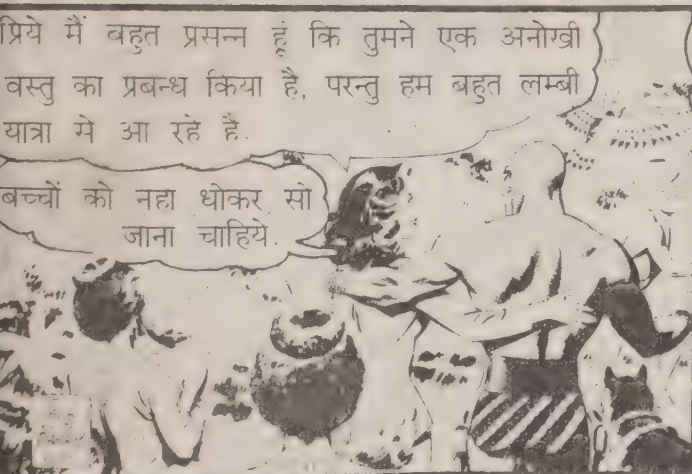 प्रिये मैं बहुत प्रसन्न हूं कि तुमने एक अनोखी
वस्तु का प्रबन्ध किया है, परन्तु हम बहुत लम्बी
यात्रा मे आ रहे है.
बच्चों को नहा धोकर सो
जाना चाहिये.